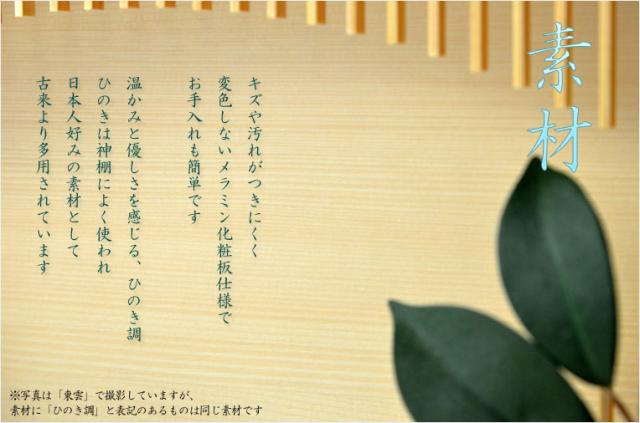 素材
キズや汚れがつきにくく
変色しないメラミン化粧板仕様で
お手入れも簡単です
温かみと優しさを感じる、ひのき調
ひのきは神棚によく使われ
日本人好みの素材として
古来より多用されています
※写真は「東雲」で撮影していますが、
素材に「ひのき調」と表記のあるものは同じ素材です